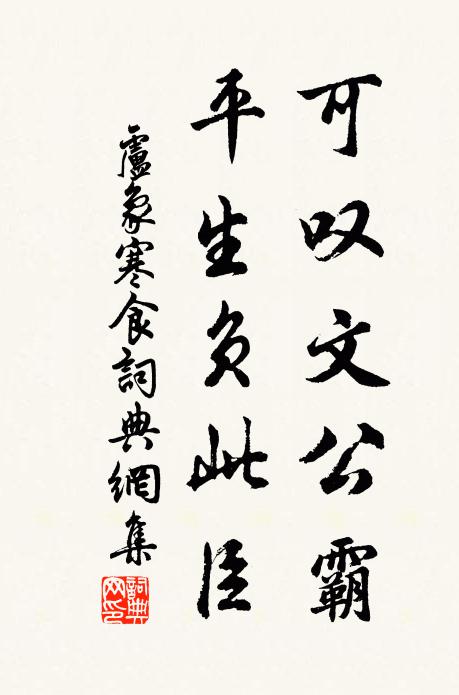 可叹文公霸
平生负此臣
盧象寒食詞典網集
詞典网印